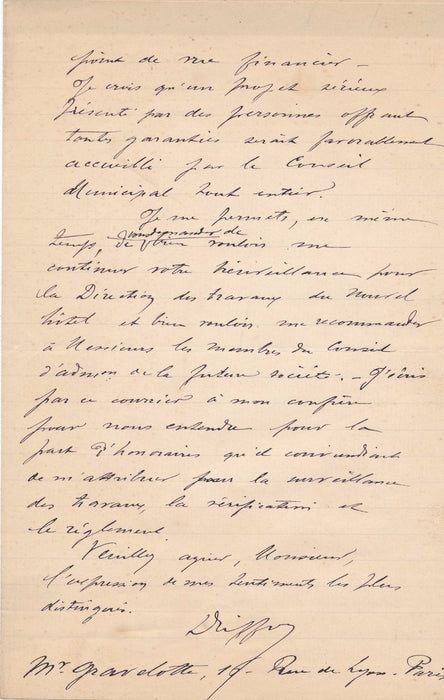 point de vue financier –
Je crois qu'un projet sérieux
présenté par des personnes offrant
toutes garanties serait favorablement
accueilli par le Conseil
Municipal tout entier.
Je me permets, en même
temps, de vous demander de
bien vouloir me
continuer votre bienveillance pour
la Direction des travaux du nouvel
hôtel et bien vouloir me recommander
à Messieurs les membres du Conseil
d'admon de la future société. – J'écris
par ce courrier à mon confrère
pour nous entendre pour la
part d'honoraires qu'il conviendrait
de m'attribuer pour la surveillance
des travaux, la vérification et
le règlement
Veuillez agréer, Monsieur,
l'expression de mes sentiments les plus
distingués.
Mr. Gravelotte, Rue de Lyon. Paris